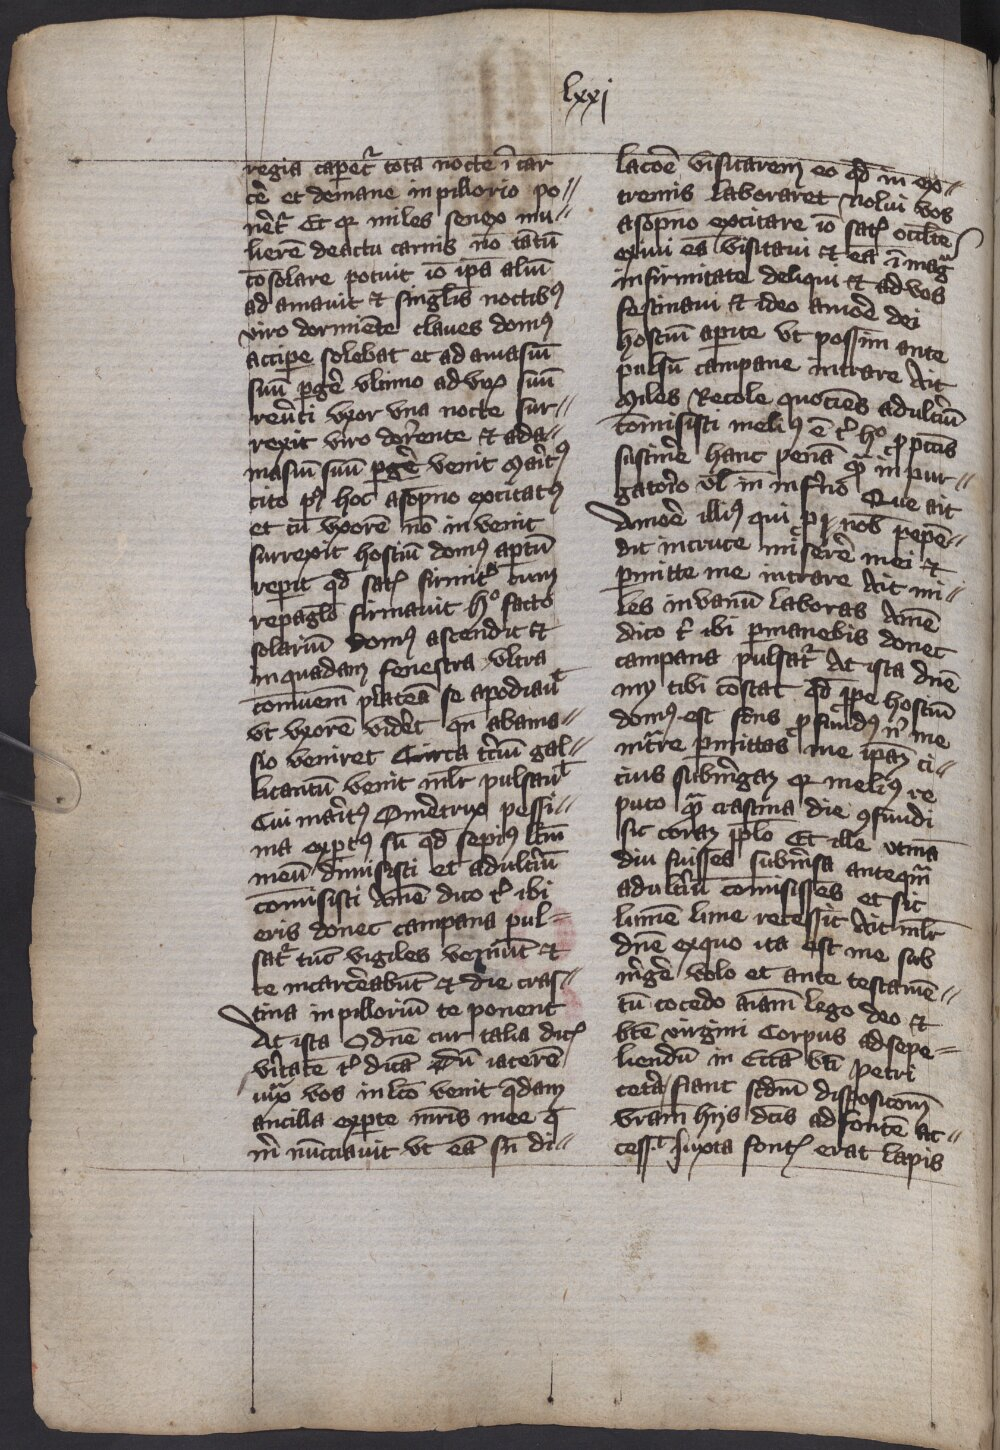 lxxj
regia caperet᷑ tota nocte ī car
cē et demane in pillorio po//
nēt᷑ Et qꝛ miles senex mu//
lierē deactu carnis nō tātū
cōsolare potuit iō ip̄a aliū
ad amauit et singl̄is noctibꝰ
viro dormiēte claues domꝰ
accipe solebat et ad amasiū
suū ꝑgē vltimo ad vxꝛ suū
reūti vxor vna nocte sur//
rexit viro dor̄ente et ad a//
masiū suū ꝑgē venit Marit̄ꝰ
cito pꝰ hoc asopno excitatꝰ
et cū vxorē nō in venit
surrexit hostiū domꝰ aptū
reperit qd̄ satꝭ firmit᷑ cum
repagl̄o firmauit Hº facto
solariū domꝰ ascendit et
in quadam fenestra vltra
cōmuem̄ plateā se apodiauͭ
vt vxorē vidēt qn̄ abama//
sio veniret Circa tc̄iū gal//
licantū venit ml̄r pulsauͭ
Cui marit̄ꝰ O mēt̄rix pessi//
ma exꝑtꝰ sū qd̄ sepiꝰ lc̄m̄
meū dimisisti et adultīū
cōmisisti Amē dico t᷑ ibi
eris donec campana pul=
sat᷑ tūc vigiles veniūt et
te incarcēabūt et die cras//
tina in pilloriū te ponent
At ista O dnē cur talia dicꝭ
vītatē t᷑ dicā Dū iacerē
iuxͣ vos in lc̄o venit q̄dam
ancilla ex ꝑte mr̄is mee q̄
m̄ nūcciauit vt eā sn̄ di//
lacōē visitarem eo qd̄ in ex//
tremis laboraret Nolui vos
asopno excitare iō satꝭ occl̄te
exiui eā visitaui et eā ī mag
infirmitate deliqui et ad vos
festinaui et ideo amōē dei
hostiū apite vt possim ante
pulsū campane intrare Ait
Miles Recole quociēs adultīū
cōmisisti meliꝰ ē t᷑ hº ꝓ pc̄c̄is
sustinē hanc penā qͣ in pur//
gatoꝛ̄o vl̄ in inf̄no Que ait
Amōē illiꝰ qui ꝓ nob̄ pepē//
dit in cruce miserē mei et
ꝑmitte me intrare Ait mi//
les in vanū laboras Amē
dico t᷑ ibi ꝑmanebis donec
campana pulsat᷑ At ista dnē
my tibi cōstat qd̄ ꝓpe hostiū
domꝰ est fōns ꝓfundꝰ nꝰ me
intrare ꝑmittas me ip̄am ci//
cius subm̄gam qꝛ meliꝰ re
puto qͣ crastina die ꝯfundi
sic coram ppl̄o Et ille vtinā
diu fuisses subm̄sa anteqm̄
adultīū cōmisisses et sic
lumē lune recessit Ait ml̄r
dnē exquo ita est me sub
m̄gē volo et ante testamē//
tū cōcedo aīam lego deo et
btē virgini Corpus ad sepe=
liendū in Eccā bti Petri
cetā fiant scdm̄ disposicōm
vram̄ hijs dc̄is ad fontē ac//
cess.t Juxta fontꝭ erat lapis